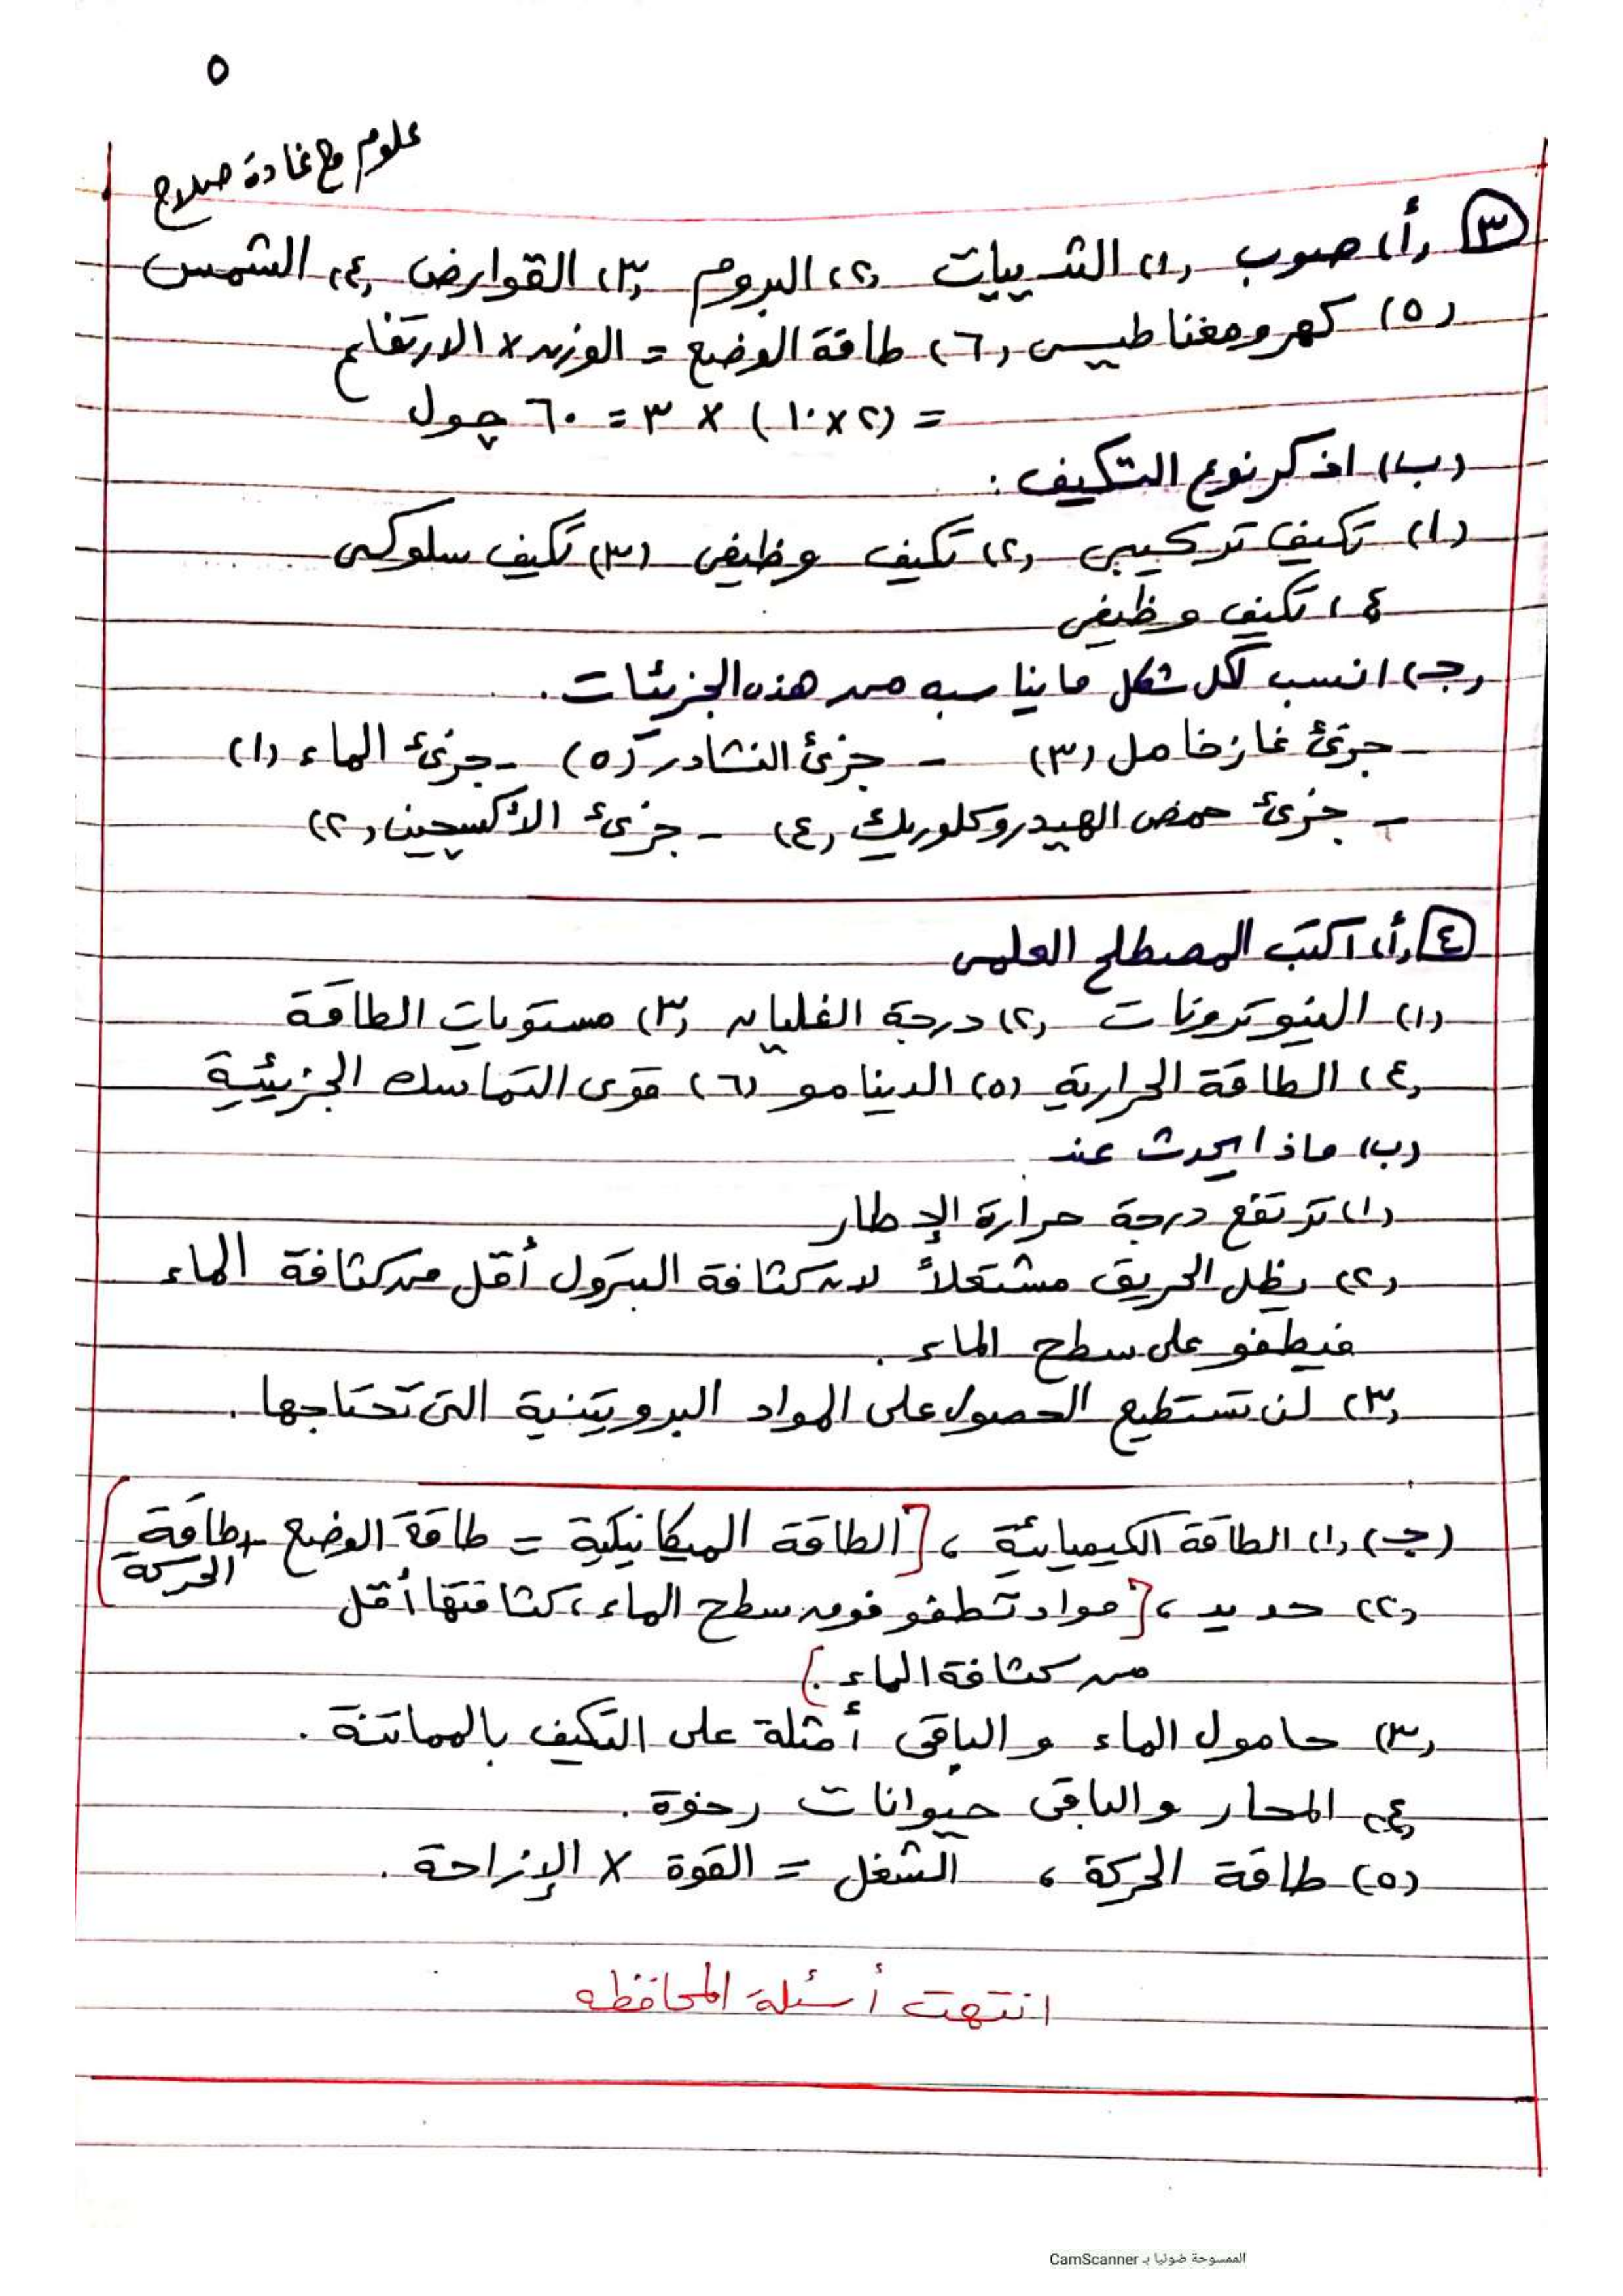 ٥
علوم مع غادة صلاح
٣ (أ) صوب (١) الثدييات (٢) البروم (٣) القوارض (٤) الشمس
(٥) كهرومغناطيسى (٦) طاقة الوضع = الوزن × الارتفاع
= (٢×١٠) × ٣ = ٦٠ چول
(ب) اذكر نوع التكيف :
(١) تكيف تركيبى (٢) تكيف وظيفى (٣) تكيف سلوكى
٤) تكيف وظيفى
(جـ) انسب لكل شكل ما يناسبه من هذه الجزيئات.
- جزئ غاز خامل (٣) - جزئ النشادر (٥) - جزىء الماء (١)
- جزىء حمض الهيدروكلوريك (٤) - جزىء الأكسچين (٢)
٤ (أ) اكتب المصطلح العلمى
(١) النيوترونات (٢) درجة الغليان (٣) مستويات الطاقة
(٤) الطاقة الحرارية (٥) الدينامو (٦) قوى التماسك الجزيئية
(ب) ماذا يحدث عند
(١) ترتفع درجة حرارة الإطار
(٢) يظل الحريق مشتعلاً لان كثافة البترول أقل من كثافة الماء
فيطفو على سطح الماء.
(٣) لن تستطيع الحصول على المواد البروتينية التى تحتاجها.
(جـ) (١) الطاقة الكيميائية ، [الطاقة الميكانيكية = طاقة الوضع + طاقة الحركة]
(٢) حديد ، [مواد تطفو فوق سطح الماء ، كثافتها أقل
من كثافة الماء.)
(٣) حامول الماء والباقى أمثلة على التكيف بالمماتنة.
(٤) المحار والباقى حيوانات رخوة.
(٥) طاقة الحركة ، الشغل = القوة × الإزاحة.
انتهت أسئلة المحافظه
الممسوحة ضوئيا بـ CamScanner